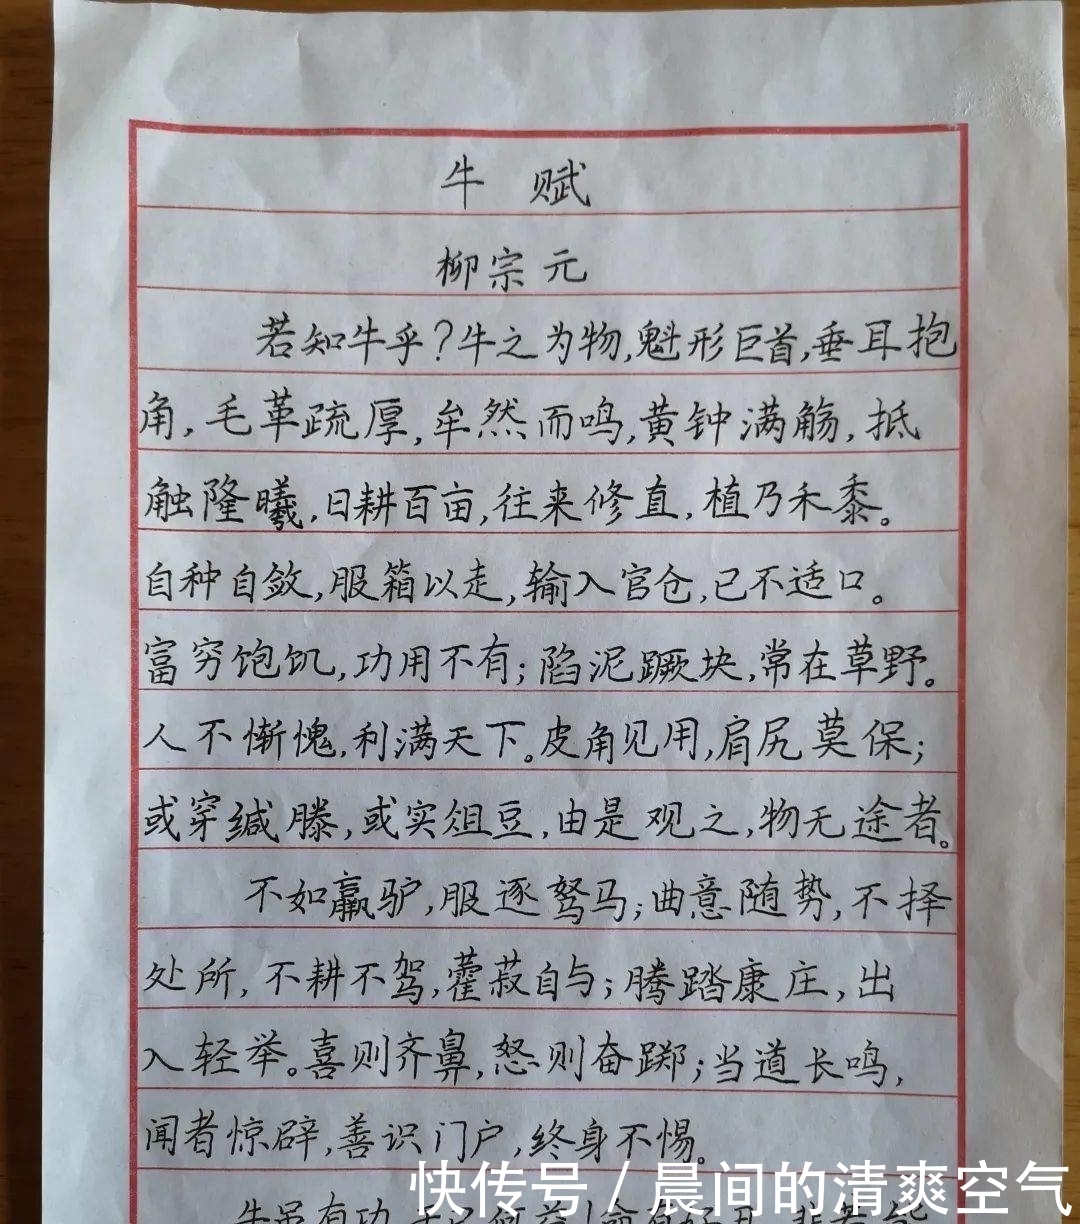 牛 赋
柳宗元
若知牛乎？牛之为物，魁形巨首，垂耳抱
角，毛革疏厚，牟然而鸣，黄钟满觞，抵
触隆曦，日耕百亩，往来修直，植乃禾黍。
自种自敛，服箱以走，输入官仓，己不适口。
富穷饱饥，功用不有；陷泥蹶块，常在草野。
人不惭愧，利满天下。皮角见用，肩尻莫保；
或穿缄滕，或实俎豆，由是观之，物无途者。
不如羸驴，服逐驽马；曲意随势，不择
处所，不耕不驾，藿菽自与；腾踏康庄，出
入轻举。喜则齐鼻，怒则奋踯；当道长鸣，
闻者惊辟，善识门户，终身不惕。
牛虽有功，于己何益！命有好丑，非若能
快传号 / 晨间的清爽空气